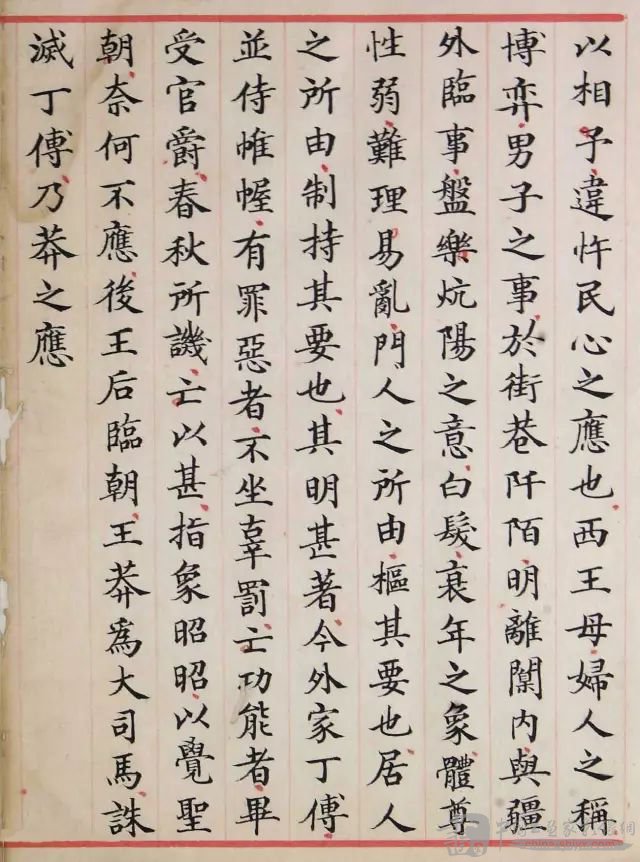 以相予違忤民心之應也西王母婦人之稱
博弈男子之事於街巷阡陌明離闑內與疆
外臨事盤樂炕陽之意白髮衰年之象體尊
性弱難理易亂門人之所由樞其要也居人
之所由制持其要也其明甚著今外家丁傅
並侍帷幄有罪惡者不坐辜罰亡功能者畢
受官爵春秋所譏亡以甚指象昭昭以覺聖
朝奈何不應後王后臨朝王莽為大司馬誅
滅丁傅乃莽之應